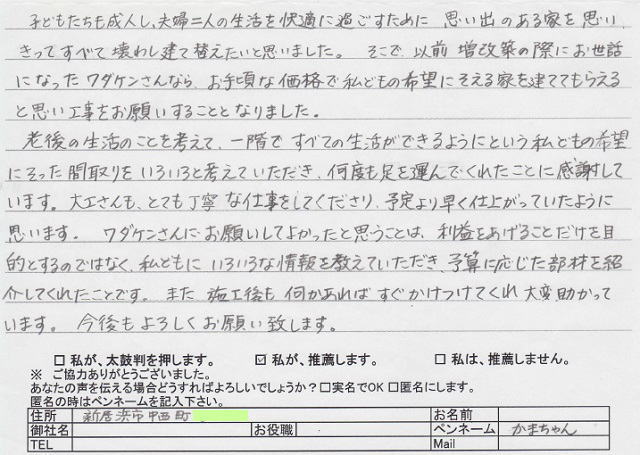 子どもたちも成人し、夫婦二人の生活を快適に過ごすために 思い出のある家を思い
きってすべて壊わし建て替えたいと思いました。そこで、以前 増改築の際にお世話
になった ワダケンさんなら、お手頃な価格で私どもの希望にそえる家を建ててもらえる
と思い工事をお願いすることとなりました。
老後の生活のことを考えて、一階で すべての生活ができるようにという私どもの希望
にそった間取りを いろいろと考えていただき、何度も足を運んでくれたことに感謝して
います。大工さんも、とても丁寧な仕事をしてくださり、予定より早く仕上がっていたように
思います。ワダケンさんにお願いしてよかったと思うことは、利益をあげることだけを目
的とするのではなく、私どもに いろいろな情報を教えていただき、予算に応じた部材を紹
介してくれたことです。また 施工後も 何かあれば すぐかけつけてくれ 大変助かって
います。今後もよろしくお願い致します。
□ 私が、太鼓判を押します。 ☑ 私が、推薦します。 □ 私は、推薦しません。
※ ご協力ありがとうございました。
あなたの声を伝える場合どうすればよろしいでしょうか？□実名でOK □匿名にします。
匿名の時はペンネームを記入下さい。
住所 新居浜市中西町 お名前
御社名 お役職 ペンネーム かまちゃん
TEL Mail